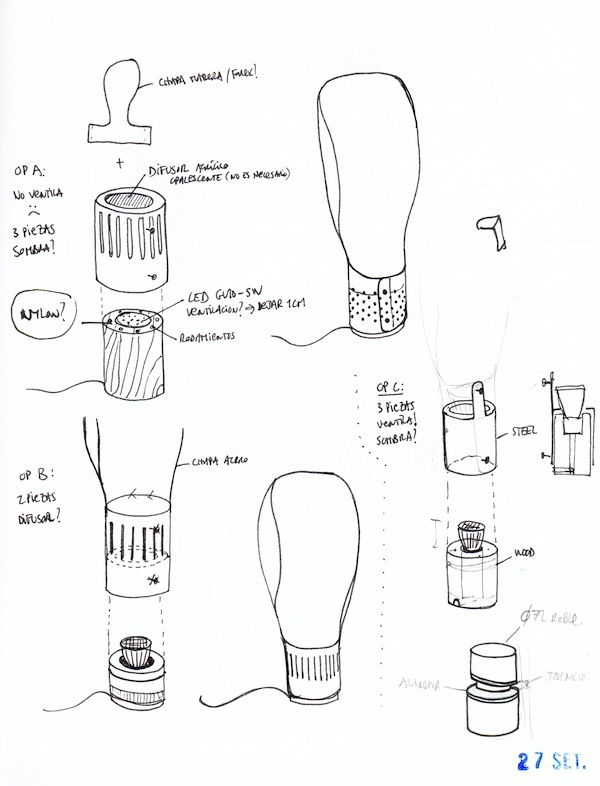 CHAPA MADERA / FINEX?
+
OP A:
NO VENTILA
:(
3 PIEZAS
SOMBRA?
DIFUSOR ACRÍLICO
OPALESCENTE (NO ES NECESARIO)
NYLON?
LED GU10-5W
VENTILACION? ⇒ DEJAR 1CM
RODAMIENTOS
OP B:
2 PIEZAS
DIFUSOR?
CHAPA ACERO
OP C:
3 PIEZAS
VENTILA!
SOMBRA?
STEEL
WOOD
Ø72 ROBLE
ARANDELA
TORNILLO
27 SET.